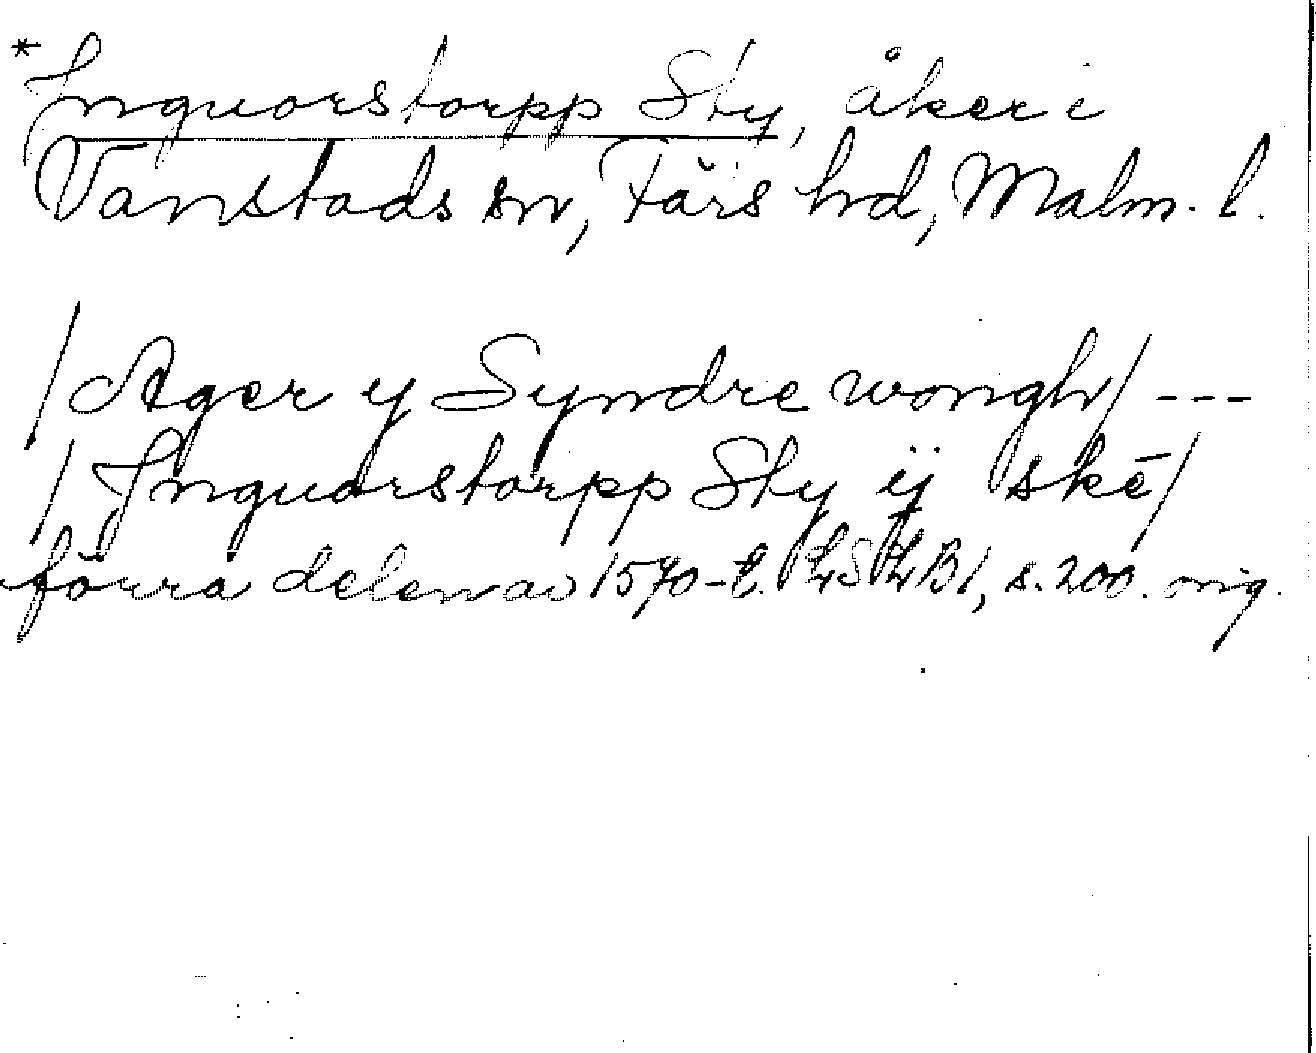 *Inguorstorpp Sty, åker i
Vanstads sn, Färs hd, Malm. l.
/Ager y Syndre wongh/ ---
/Inguorstorpp Sty ij skē/
förra delen av 1570-t. LSLB1, s. 200. orig.